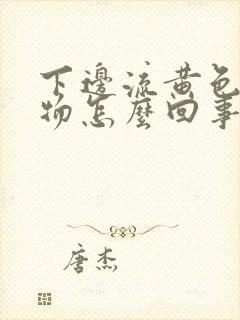 下邊流黃色
物怎麼回事
唐杰